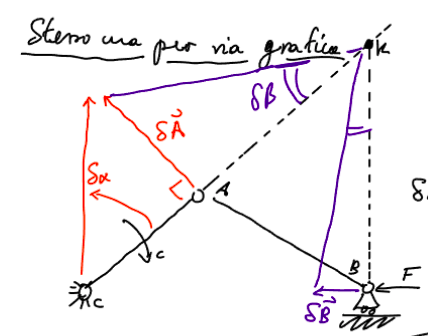 Stesso ma per via grafica
K
δB
δA⃗
δα
A
c
C
B
F
δB⃗
δ